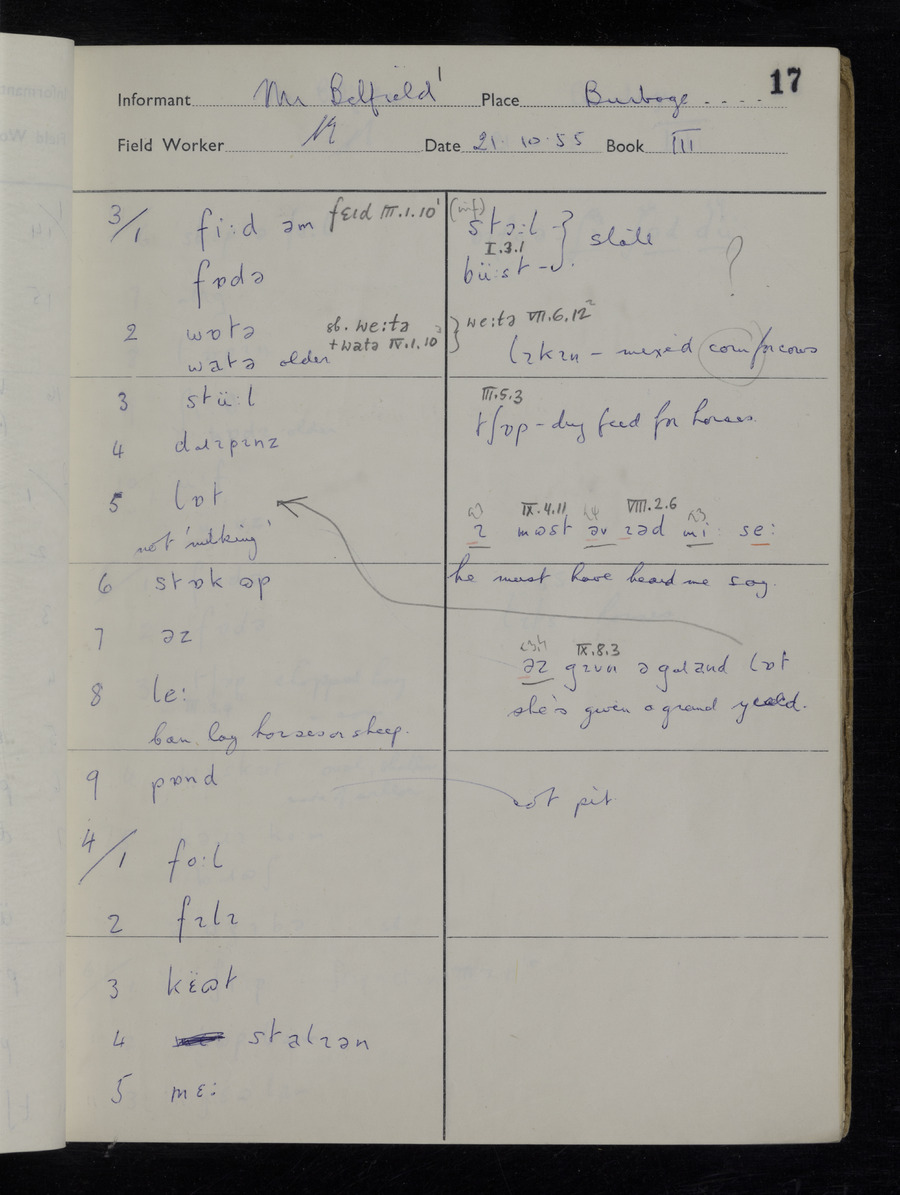 17
Informant Mr Belfield Place Burbage
Field Worker N Date 21. 10. 55 Book III
3/1 fi:d əm fɛɪd III.1.10
fɒdə
2 wɒtə sb. we:tə
watə older + watə IV.1.10
3 stü:l
4
5 lɒt
not 'milking'
6 stɒk əp
7 əz
8 le:
ban. lay horses or sheep.
9 pɒnd
4/1 fo:l
2 fɪlɪ
3
4 stalɪən
5 mɛ:
(inf)
stɔ:l } stall
I.3.1
bü:st
?
we:tə VII.6.12
lɪkɪn - mixed corn for cows
III.5.3
tʃɒp - dry feed for horses.
IX.4.11 VIII.2.6
ɪ məst əv ɪəd mi: se:
he must have heard me say.
IX.8.3
əz gɪvn ə lɒt
she's given a grand yield.
not pit